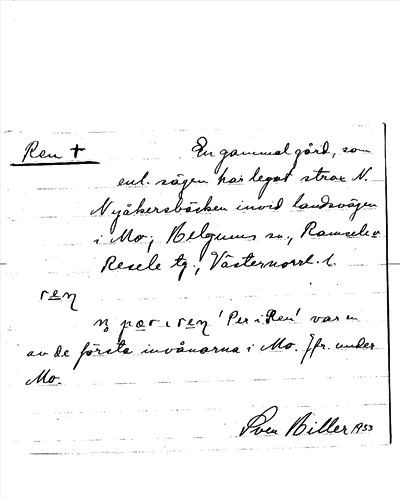 Ren † En gammal gård, som
enl. sägen har legat strax N.
Nyåkersbäcken invid landsvägen
i Mo, Helgums sn., Ramsele o
Resele tg., Västernorrl. l.
ren
pær i ren 'Per i Ren' var en
av de första invånarna i Mo. Jfr. under
Mo.
Sven Biller 1933